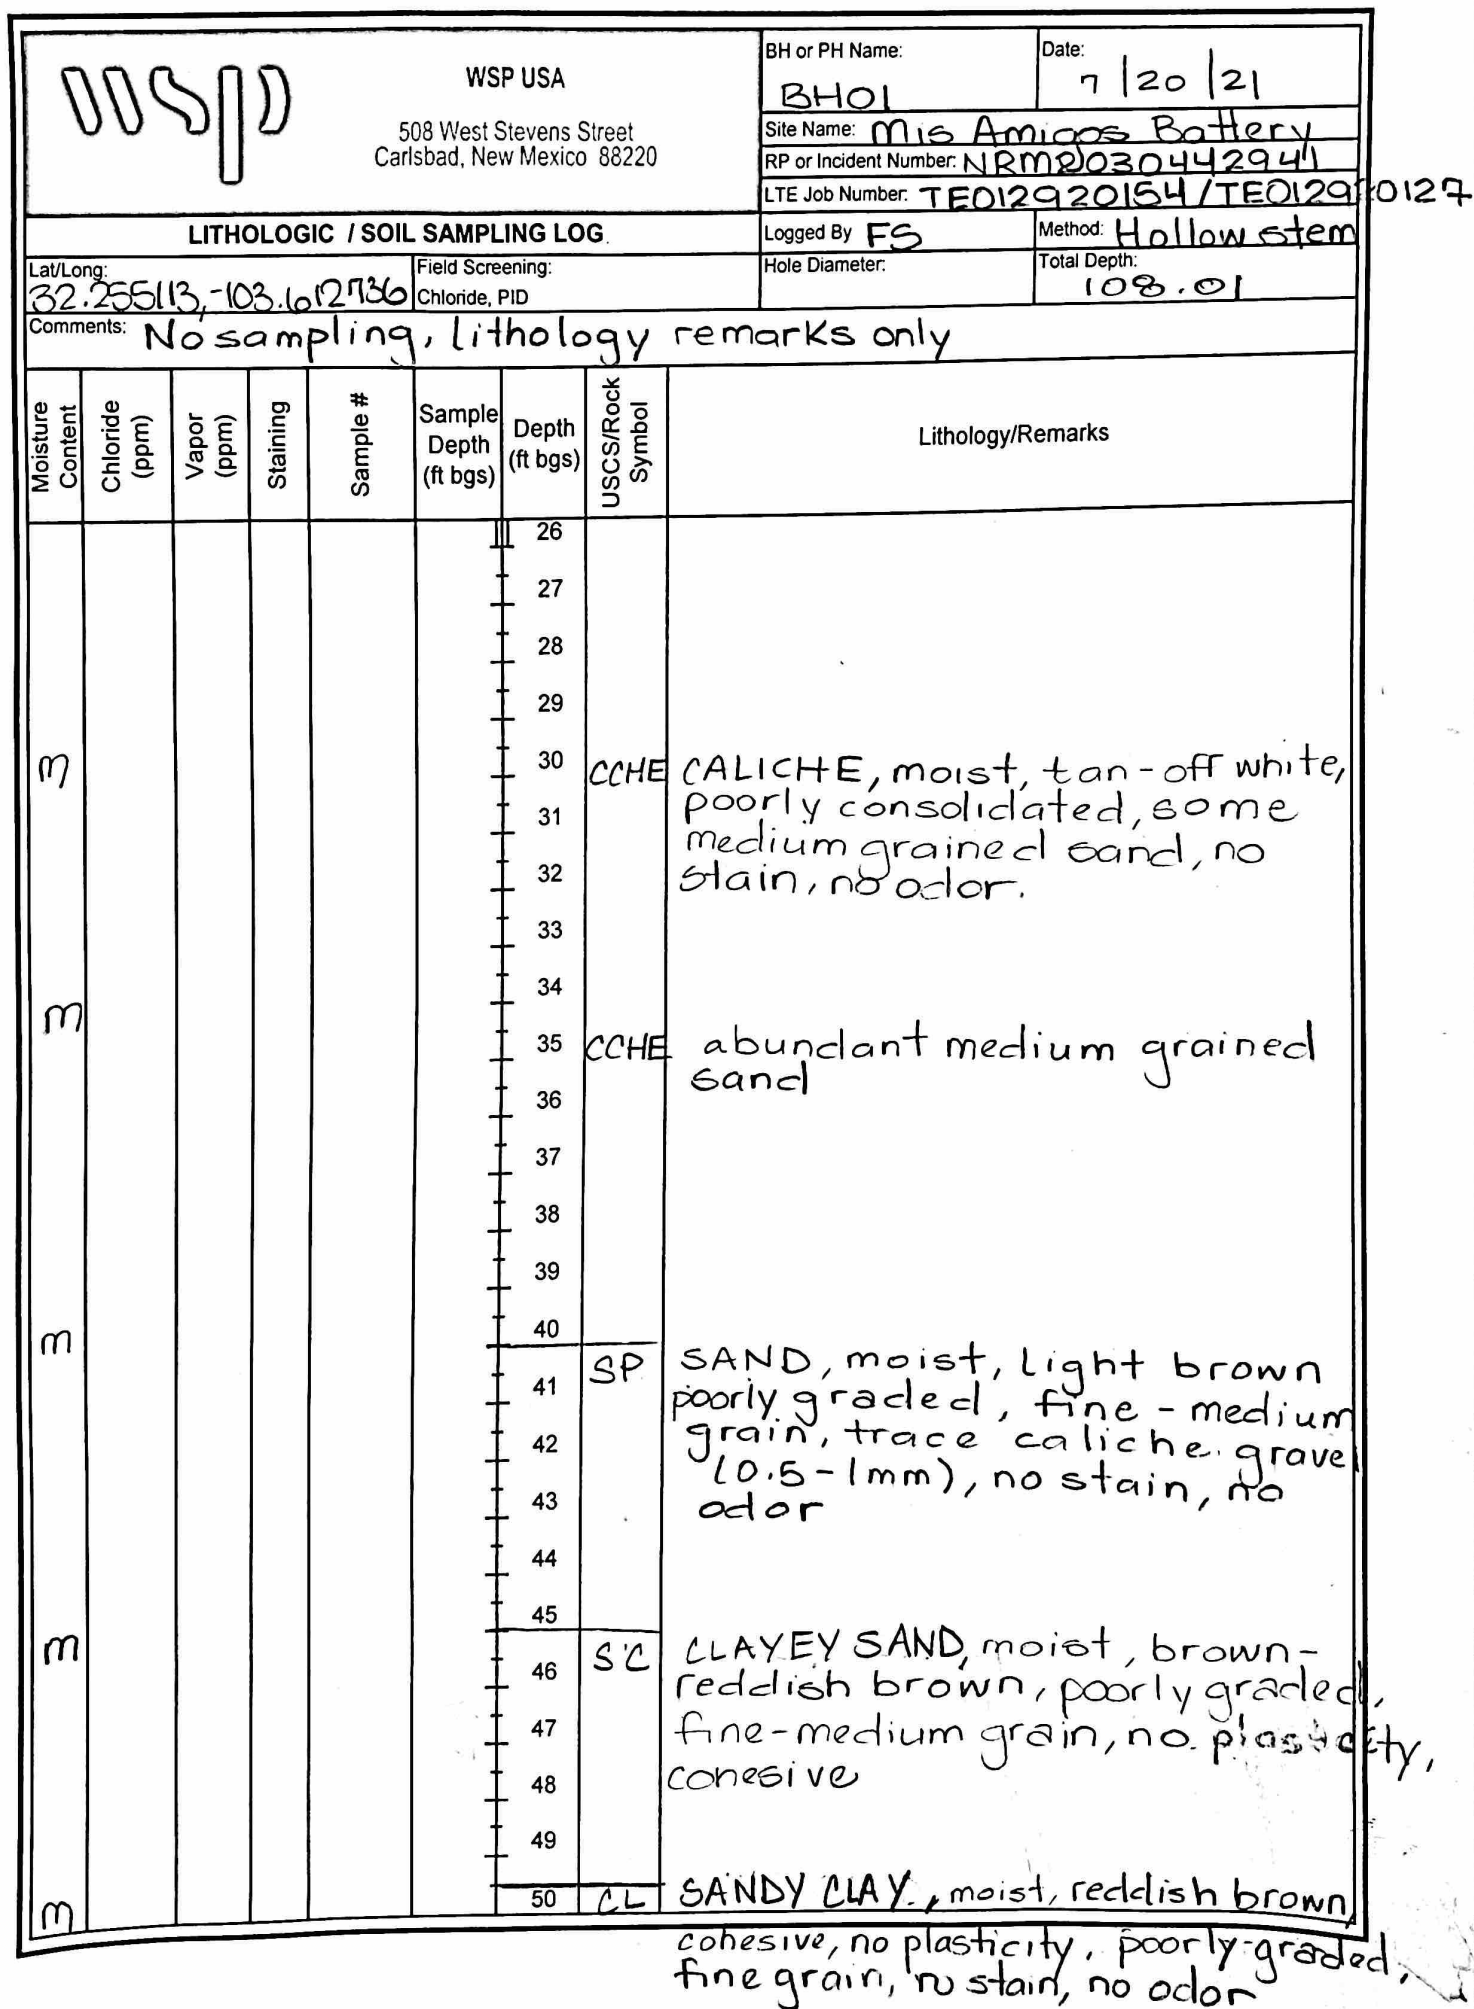 wsp
WSP USA
508 West Stevens Street
Carlsbad, New Mexico 88220
BH or PH Name:
BH01
Date:
7/20/21
Site Name: Mis Amigos Battery
RP or Incident Number: NRM2030442941
LTE Job Number: TE012920154/
LITHOLOGIC / SOIL SAMPLING LOG
Logged By FS
Method: Hollow stem
Lat/Long:
32.255113,-103.612736
Field Screening:
Chloride, PID
Hole Diameter:
Total Depth:
108.01
Comments: No sampling, lithology remarks only
Moisture Content
Chloride (ppm)
Vapor (ppm)
Staining
Sample #
Sample Depth (ft bgs)
Depth (ft bgs)
USCS/Rock Symbol
Lithology/Remarks
26
27
28
29
m 30 CCHE CALICHE, moist, tan-off white,
31 poorly consolidated, some
medium grained sand, no
32 stain, no odor.
33
34
m 35 CCHE abundant medium grained
sand
36
37
38
39
40
m SP SAND, moist, light brown
41 poorly graded, fine-medium
42 grain, trace caliche gravel
(0.5-1mm), no stain, no
43 odor
44
45
m SC CLAYEY SAND, moist, brown-
46 reddish brown, poorly graded,
47 fine-medium grain, no plasticity,
48 cohesive
49
m 50 CL SANDY CLAY, moist, reddish brown,
cohesive, no plasticity, poorly-graded,
fine grain, no stain, no odor